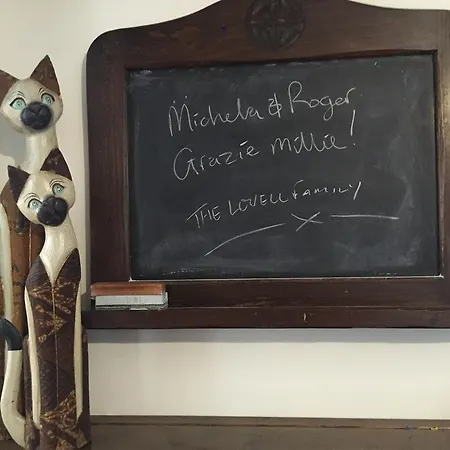 Michela & Roger
Grazie mille!
THE LOVELL FAMILY
X